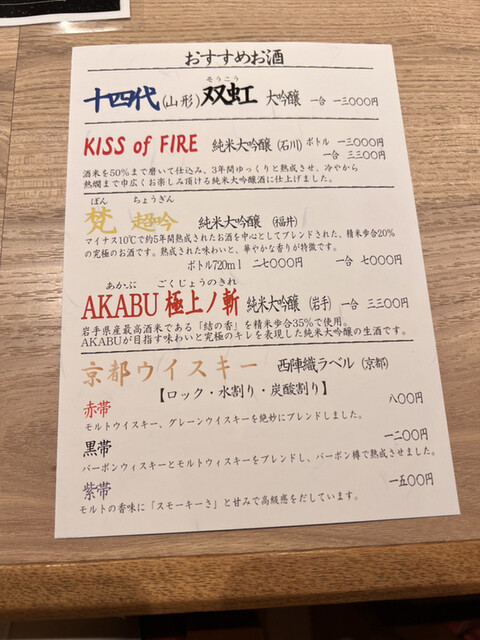 おすすめお酒
そうこう
十四代(山形)双虹 大吟醸 一合 一三〇〇〇円
KISS of FIRE 純米大吟醸(石川) ボトル 一三〇〇〇円
一合 三三〇〇円
酒米を50%まで磨いて仕込み、3年間ゆっくりと熟成させ、冷やから
熱燗まで巾広くお楽しみ頂ける純米大吟醸酒に仕上げました。
ぼん ちょうぎん
梵 超吟 純米大吟醸(福井)
マイナス10℃で約5年間熟成されたお酒を中心としてブレンドされた、精米歩合20%
の究極のお酒です。熟成された味わいと、華やかな香りが特徴です。
ボトル720ml 二七〇〇〇円 一合 七〇〇〇円
あかぶ ごくじょうのきれ
AKABU 極上ノ斬 純米大吟醸(岩手) 一合 三三〇〇円
岩手県産最高酒米である「結の香」を精米歩合35%で使用。
AKABUが目指す味わいと究極のキレを表現した純米大吟醸の生酒です。
京都ウイスキー 西陣織ラベル(京都)
【ロック・水割り・炭酸割り】
赤帯 八〇〇円
モルトウイスキー、グレーンウイスキーを絶妙にブレンドしました。
黒帯 一二〇〇円
バーボンウィスキーとモルトウィスキーをブレンドし、バーボン樽で熟成させました。
紫帯 一五〇〇円
モルトの香味に「スモーキーさ」と甘みで高級感をだしています。